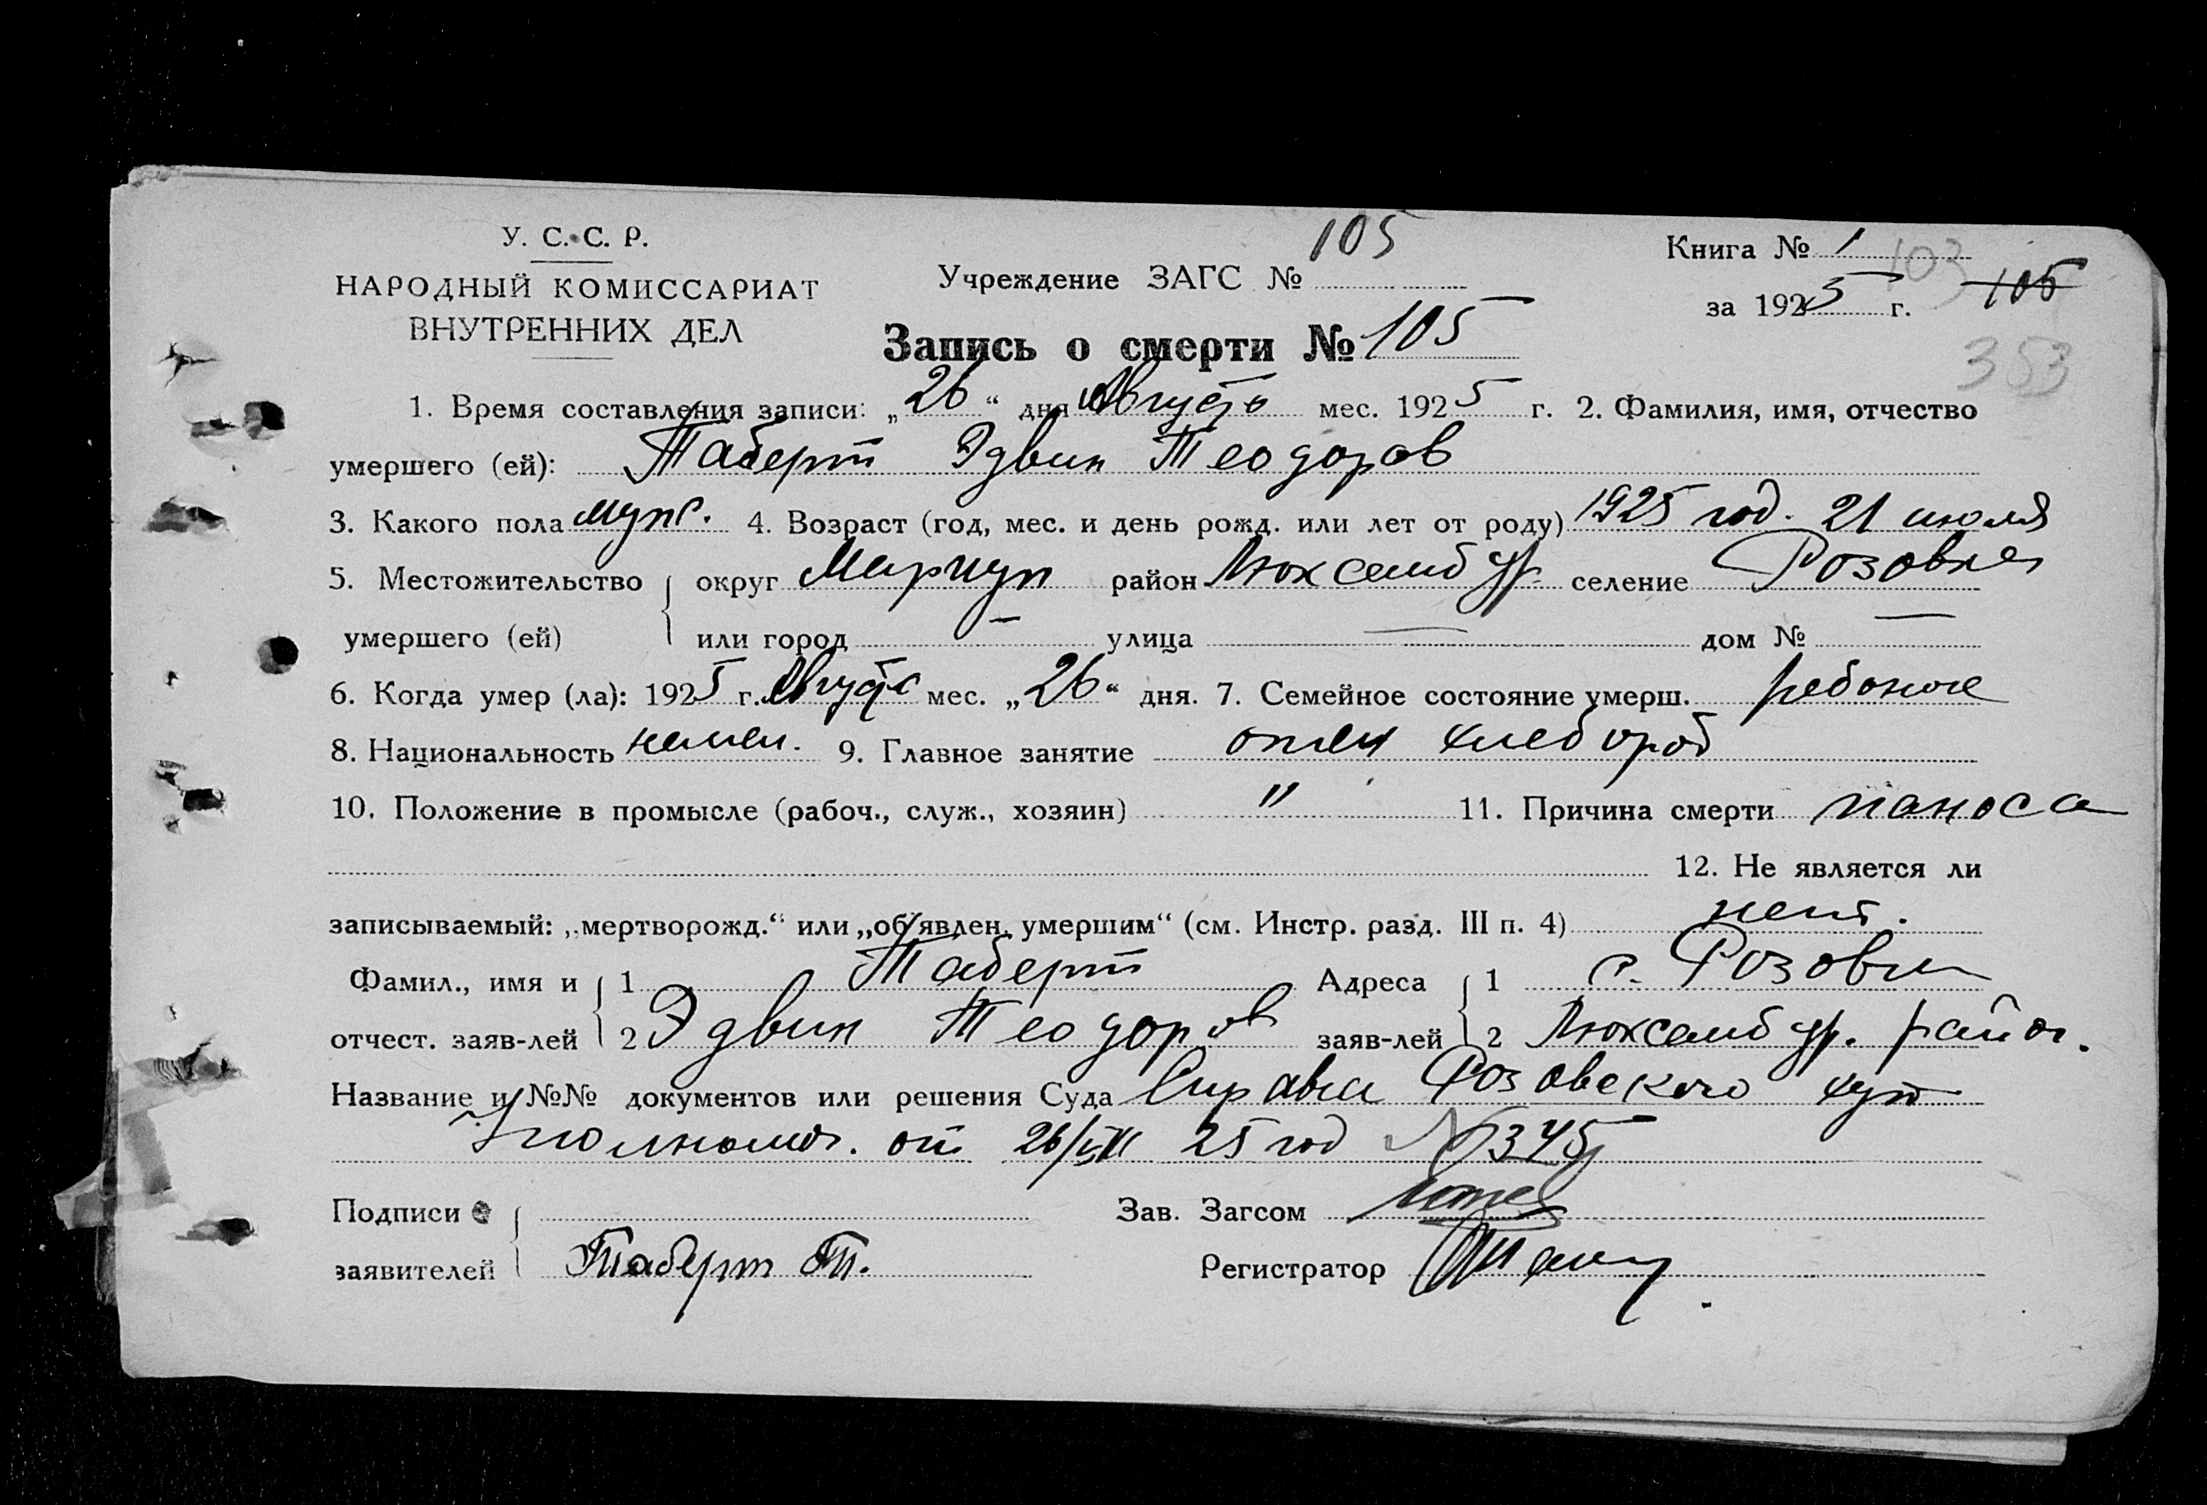 У. С. С. Р.
НАРОДНЫЙ КОМИССАРИАТ
ВНУТРЕННИХ ДЕЛ
Учреждение ЗАГС № 105
Книга № 1 103
за 1925 г. 105
353
Запись о смерти № 105
1. Время составления записи: „26“ дня Августа мес. 1925 г. 2. Фамилия, имя, отчество
умершего (ей): Таберт Эдвин Теодоров
3. Какого пола муж. 4. Возраст (год, мес. и день рожд. или лет от роду) 1925 год. 21 июля
5. Местожительство округ Мариуп район Люксембур. селение Розовка
умершего (ей) или город — улица — дом № —
6. Когда умер (ла): 1925 г. Августа мес. „26“ дня. 7. Семейное состояние умерш. ребенок
8. Национальность немец. 9. Главное занятие отец хлебороб
10. Положение в промысле (рабоч., служ., хозяин) " 11. Причина смерти поноса
12. Не является ли
записываемый: „мертворожд.“ или „об'явлен. умершим“ (см. Инстр. разд. III п. 4) нет.
Фамил., имя и 1 Таберт Адреса 1 с. Розовка
отчест. заяв-лей 2 Эдвин Теодоров заяв-лей 2 Люксембур. район.
Название и №№ документов или решения Суда Справка Розовского
Уполномоч. от 26/VIII 25 год № 345
Подписи Зав. Загсом
заявителей Таберт Т. Регистратор